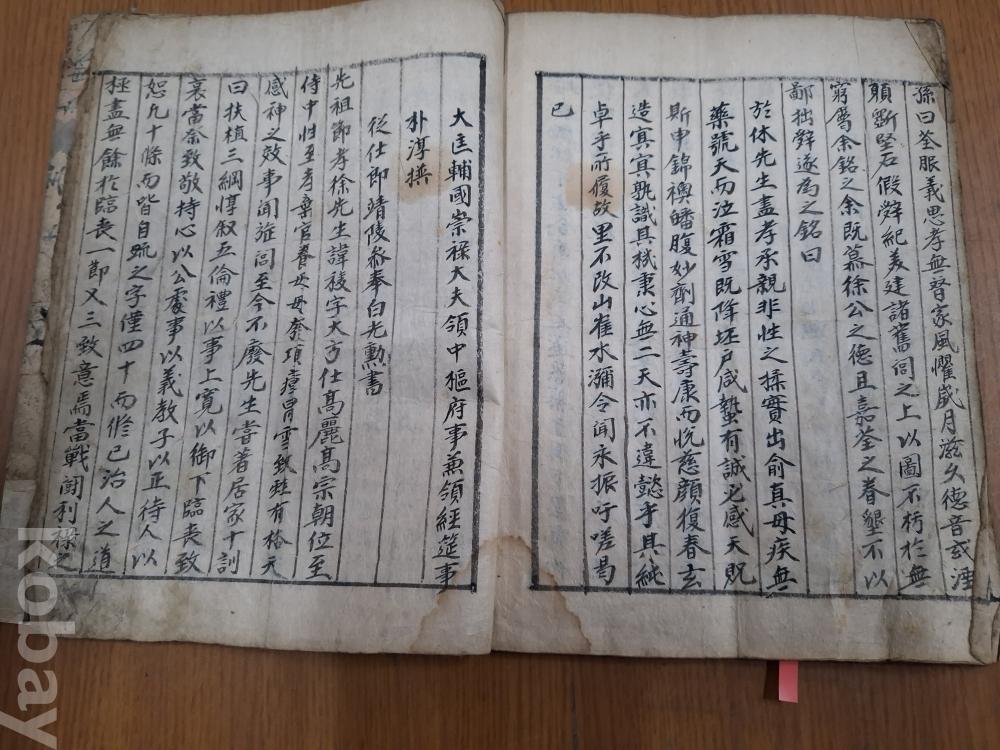 孫曰荃服義思孝無替家風懼歲月滋久德音或湮
願斲堅石假辭紀美建諸舊閭之上以圖不朽於無
窮蔓余銘之余既慕徐公之德且嘉荃之眷懇不以
鄙拙辭遂為之銘曰
於休先生盡孝承親非性之揉實出俞真母疾無
藥號天而泣霜雪既降坯戶咸蟄有誠必感天既
斯申錦襖皤腹妙劑通神壽康而悅慈顏復春玄
造寘寘孰識其栻秉心無二天亦不違懿乎其純
卓乎所履故里不改山崔水瀰令聞永振吁嗟曷
已
大匡輔國崇祿大夫領中樞府事兼領經筵事
朴淳撰
從仕郎靖陵參奉白光勳書
先祖節孝徐先生諱稜字大方仕高麗高宗朝位至
侍中性至孝棄官養母母發項疽冒雪致蛙有格天
感神之效事聞旌閭至今不廢先生嘗著居家十訓
曰扶植三綱惇叙五倫禮以事上寬以御下臨喪致
哀當祭致敬持心以公處事以義教子以正待人以
恕凡十條而皆自疏之字僅四十而修己治人之道
極盡無餘於臨喪一節又三致意焉當戰鬪利祿之
kobay